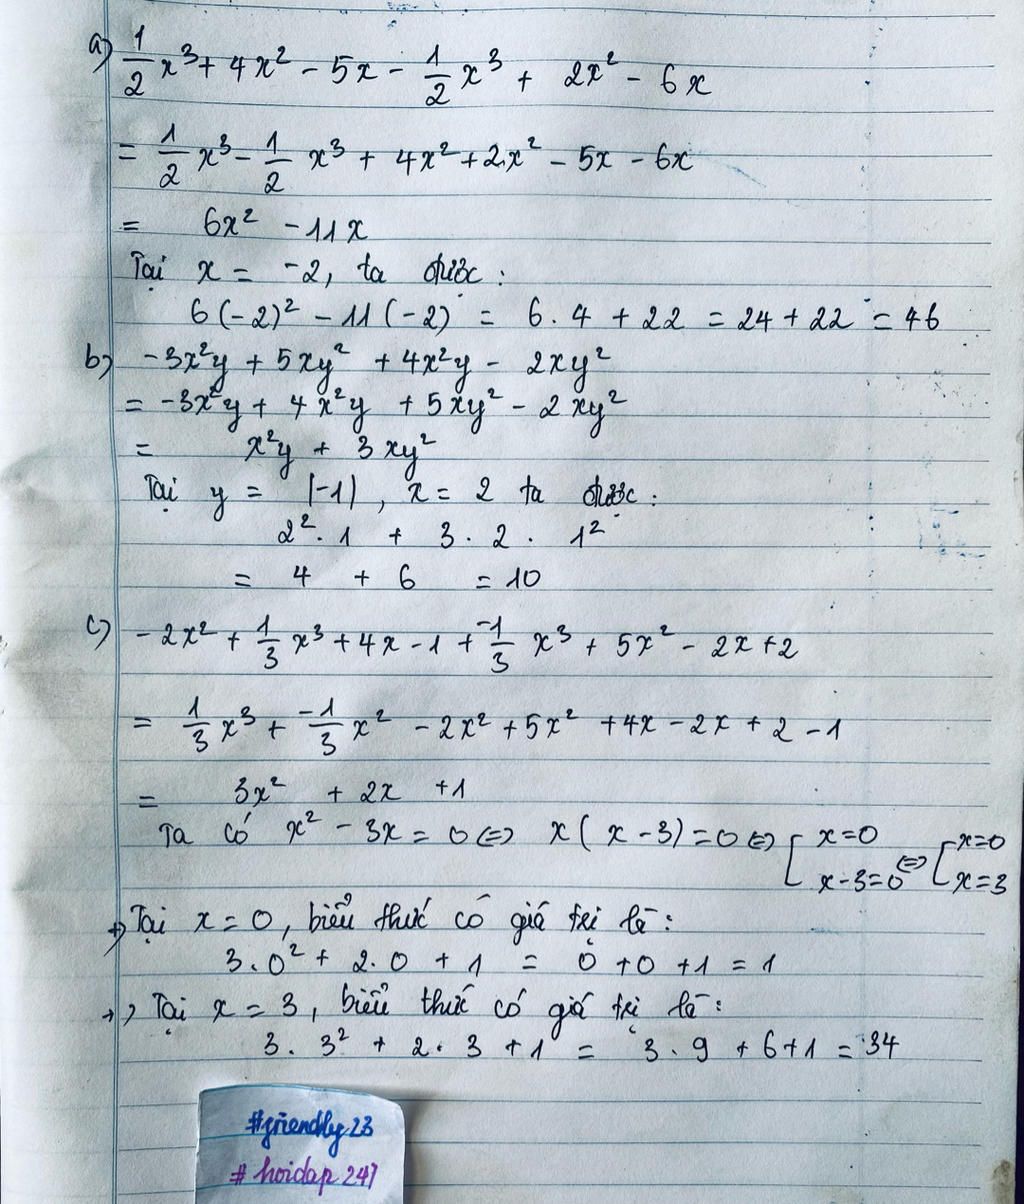 a) 1/2 x³ + 4x² - 5x - 1/2 x³ + 2x² - 6x
= 1/2 x³ - 1/2 x³ + 4x² + 2x² - 5x - 6x
= 6x² - 11x
Tại x = -2, ta được:
6(-2)² - 11(-2) = 6.4 + 22 = 24 + 22 = 46
b) -3x²y + 5xy² + 4x²y - 2xy²
= -3x²y + 4x²y + 5xy² - 2xy²
= x²y + 3xy²
Tại y = |-1|, x = 2 ta được:
2².1 + 3.2.1²
= 4 + 6 = 10
c) -2x² + 1/3 x³ + 4x - 1 + -1/3 x³ + 5x² - 2x + 2
= 1/3 x³ + -1/3 x² - 2x² + 5x² + 4x - 2x + 2 - 1
= 3x² + 2x + 1
Ta có x² - 3x = 0 ⇔ x(x - 3) = 0 ⇔ [ x = 0 x - 3 = 0 ⇔ [ x = 0 x = 3
+) Tại x = 0, biểu thức có giá trị là:
3.0² + 2.0 + 1 = 0 + 0 + 1 = 1
+) Tại x = 3, biểu thức có giá trị là:
3.3² + 2.3 + 1 = 3.9 + 6 + 1 = 34
#friendly23
#hoidap247